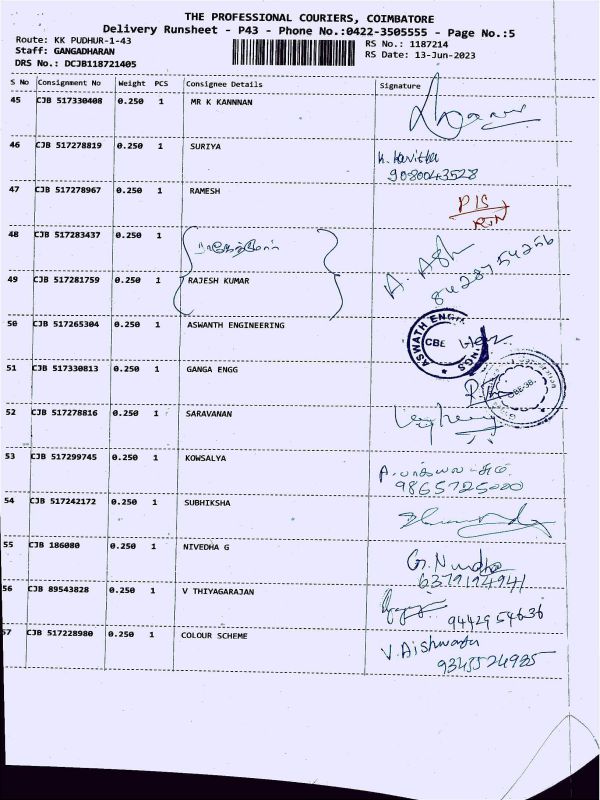 THE PROFESSIONAL COURIERS, COIMBATORE
Delivery Runsheet - P43 - Phone No.:0422-3505555 - Page No.:5
Route: KK PUDHUR-1-43 RS No.: 1187214
Staff: GANGADHARAN RS Date: 13-Jun-2023
DRS No.: DCJB118721405
S No Consignment No Weight PCS Consignee Details Signature
45 CJB 517330408 0.250 1 MR K KANNNAN
46 CJB 517278819 0.250 1 SURIYA K. Kavitha
9080043528
47 CJB 517278967 0.250 1 RAMESH P/S
48 CJB 517283437 0.250 1
8428754256
49 CJB 517281759 0.250 1 RAJESH KUMAR
50 CJB 517265304 0.250 1 ASWANTH ENGINEERING ASWATH ENGI NGS CBE
51 CJB 517330813 0.250 1 GANGA ENGG
52 CJB 517278816 0.250 1 SARAVANAN
53 CJB 517299745 0.250 1 KOWSALYA
9865725000
54 CJB 517242172 0.250 1 SUBHIKSHA
55 CJB 186080 0.250 1 NIVEDHA G
6379194941
56 CJB 89543828 0.250 1 V THIYAGARAJAN
9442954636
57 CJB 517228980 0.250 1 COLOUR SCHEME V. Aishwarya
9343524985